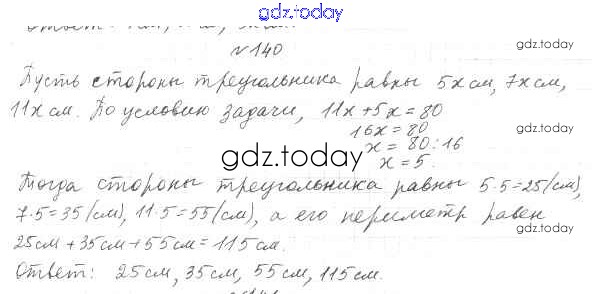 gdz.today
№140
gdz.today
Пусть стороны треугольника равны 5x см, 7x см,
11x см. По условию задачи, 11x+5x=80
16x=80
x = 80:16
gdz.today
x = 5.
Тогда стороны треугольника равны 5·5=25(см),
7·5=35(см), 11·5=55(см), а его периметр равен
gdz.today
25см+35см+55см=115см.
Ответ: 25см, 35см, 55см, 115см.
gdz.today